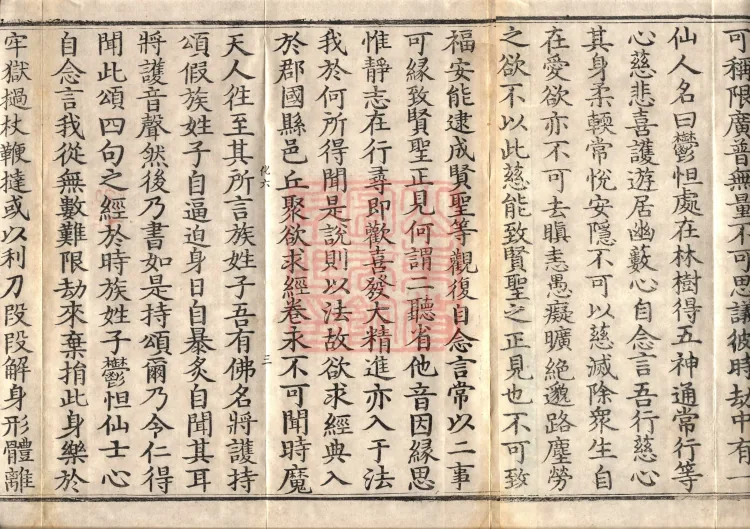 可稱限廣普無量不可思議彼時劫中有一
仙人名曰欝怛處在林樹得五神通常行等
心慈悲喜護遊居幽藪心自念言吾行慈心
其身柔輭常悅安隱不可以慈滅除衆生自
在愛欲亦不可去瞋恚愚癡曠絕邈路塵勞
之欲不以此慈能致賢聖之正見也不可致
福安能逮成賢聖等觀復自念言常以二事
可緣致賢聖正見何謂二聽省他音因緣思
惟靜志在行尋即歡喜發大精進亦入于法
我於何所得聞是說則以法故欲求經典入
於郡國縣邑丘聚欲求經卷永不可聞時魔
化六
三
天人徃至其所言族姓子吾有佛名將護持
頌假族姓子自逼迫身日自暴炙自聞其耳
將護音聲然後乃書如是持頌爾乃令仁得
聞此頌四句之經於時族姓子欝怛仙士心
自念言我從無數難限劫來棄捐此身樂於
牢獄撾杖鞭撻或以利刀段段解身形體離